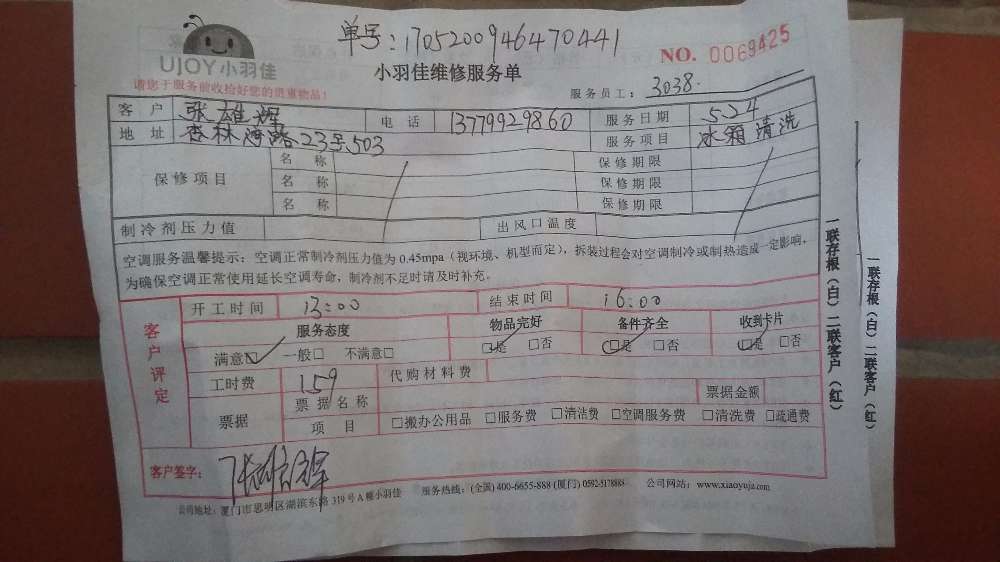 单号:1705200946470441
UJOY小羽佳
小羽佳维修服务单
NO. 0069425
请您于服务前收检好您的贵重物品!
服务员工: 3038.
客户 张雄辉 电话 13779929860 服务日期 5.24
地址 杏林湾路23号503 服务项目 冰箱清洗
保修项目
名称 保修期限
名称 保修期限
名称 保修期限
制冷剂压力值 出风口温度
空调服务温馨提示:空调正常制冷剂压力值为 0.45mpa(视环境、机型而定),拆装过程会对空调制冷或制热造成一定影响,
为确保空调正常使用延长空调寿命,制冷剂不足时请及时补充。
客户评定
开工时间 13:00 结束时间 16:00
服务态度 物品完好 备件齐全 收到卡片
满意☑ 一般□ 不满意□ ☑是 □否 ☑是 □否 ☑是 □否
工时费 159 代购材料费
票据 票据名称 票据金额
项目 □搬办公用品 □服务费 □清洁费 □空调服务费 □清洗费 □疏通费
客户签字: 张雄辉
公司地址:厦门市思明区湖滨东路 319 号 A 幢小羽佳 服务热线:(全国) 400-6655-888 (厦门) 0592-5178888 公司网站:www.xiaoyujia.com
一联存根(白)二联客户(红)
一联存根(白)二联客户(红)